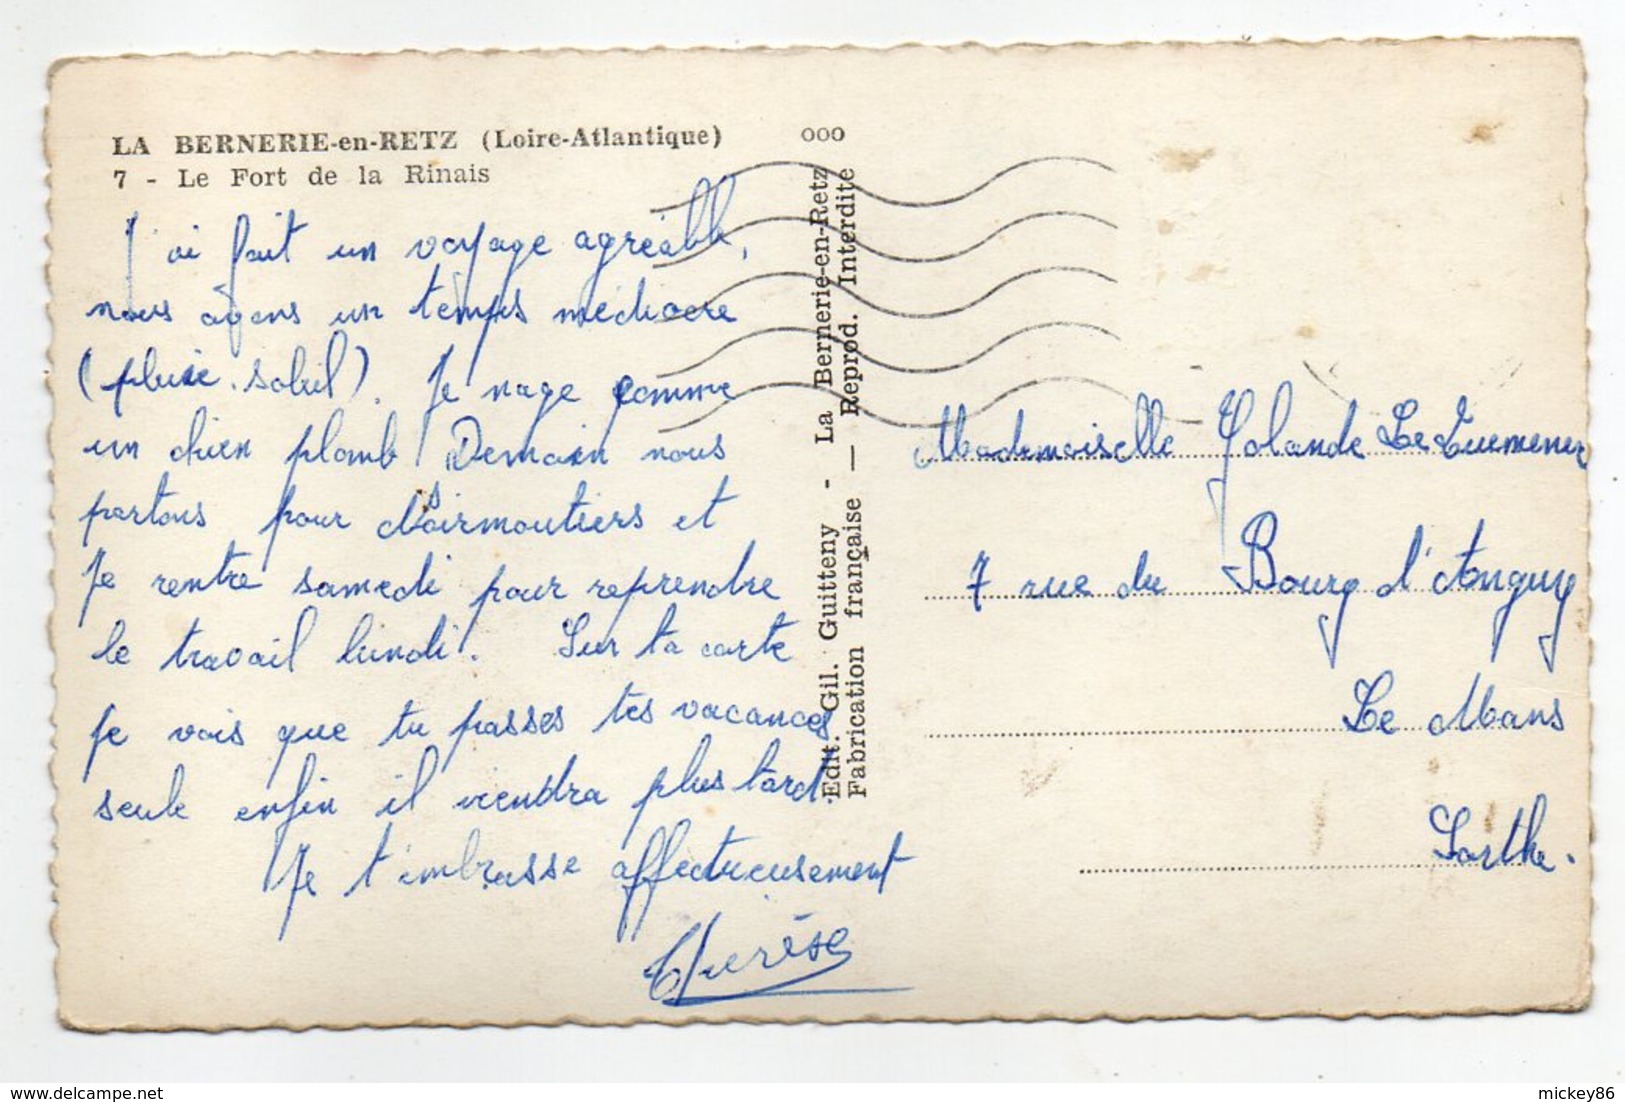 LA BERNERIE-en-RETZ (Loire-Atlantique)
7 - Le Fort de la Rinais
J'ai fait un voyage agréable,
nous avons un temps médiocre
(pluie. soleil). Je nage comme
un chien plomb Demain nous
partons pour Noirmoutiers et
Je rentre samedi pour reprendre
le travail lundi. Sur ta carte
Je vois que tu passes tes vacances
seule enfin il viendra plus tard.
Je t'embrasse affectueusement
Thérèse
ooo
Edit. Gil. Guitteny - La Bernerie-en-Retz
Fabrication française — Reprod. Interdite
Mademoiselle Yolande Le Tuemener
7 rue du Bourg d'Anguy
Le Mans
Sarthe.
mickey86